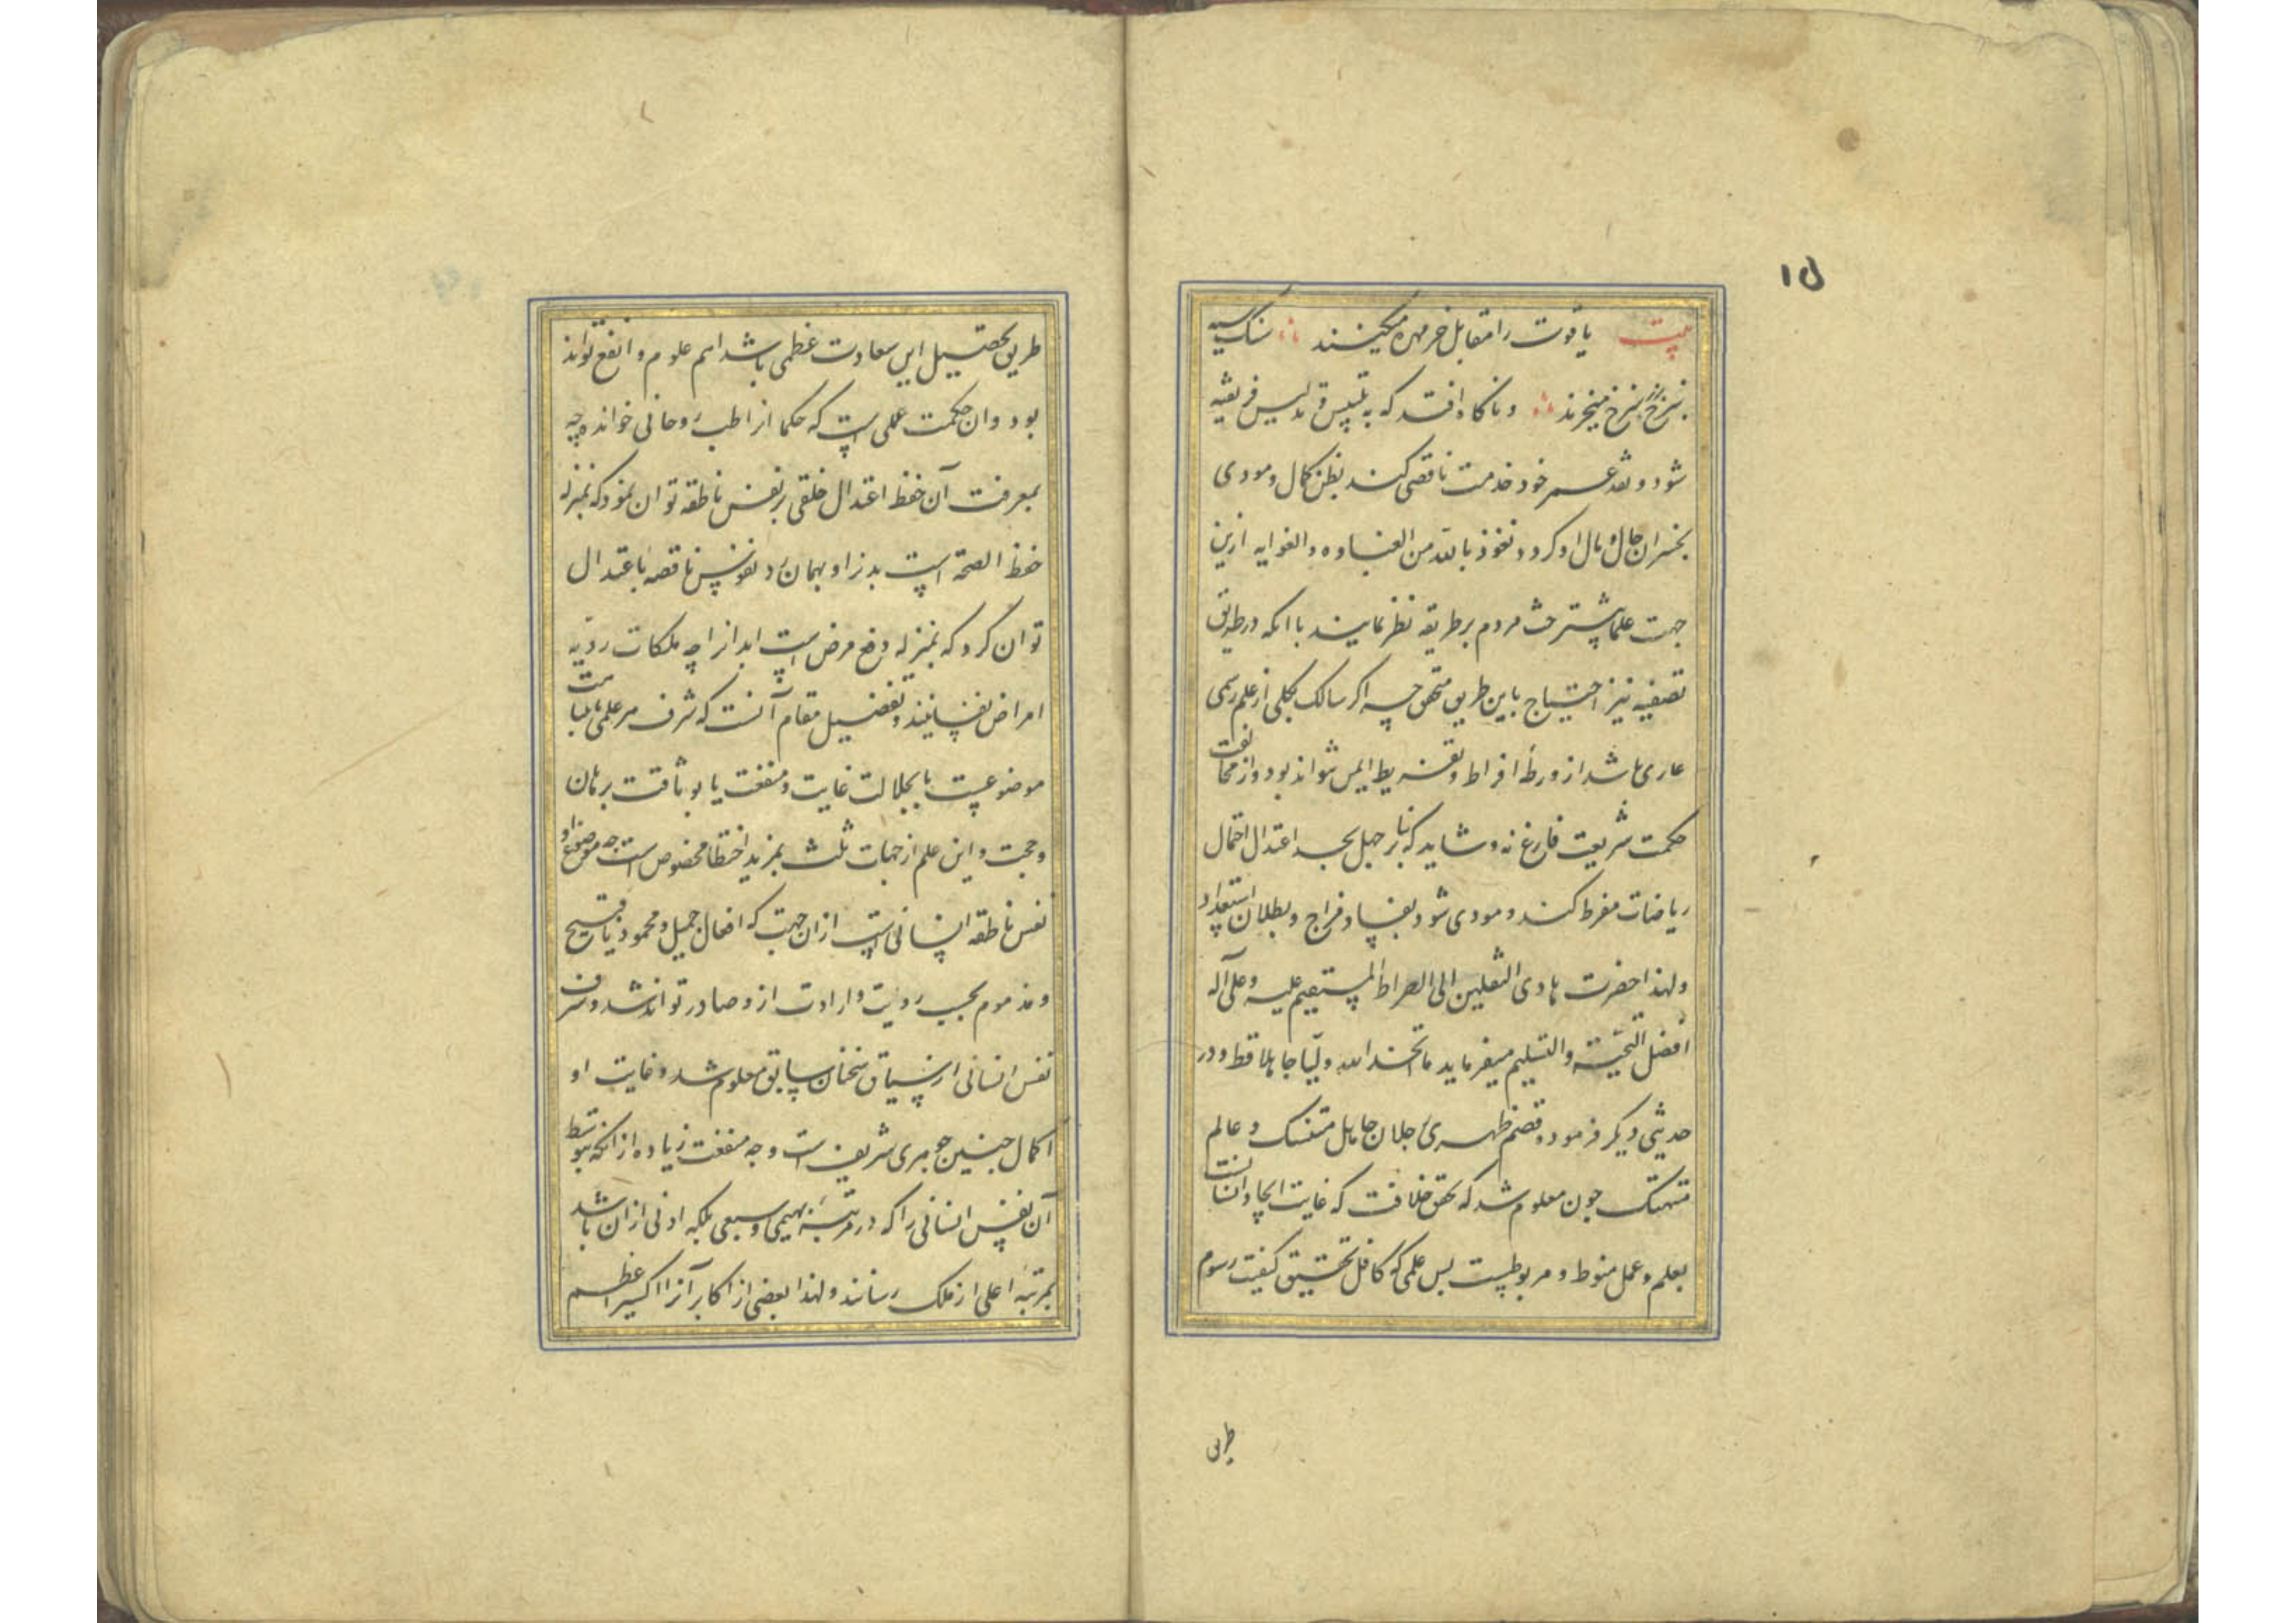 ۱۵
بیت یاقوت را مقابل خرمهره میکنند سنک سیه
بنرخ بنرخ میخرند و ناکاه افتد که به تلبیس و تدلیس فریفته
شود و نقد عمر خود خدمت ناقصی کند بظن کمال و مودی
بخسران حال و مال او کردد نعوذ بالله من الغباوه والغوایه ازین
جهت علما بیشتر حث مردم بر طریقه نظر نمایند با انکه در طریق
تصفیه نیز احتیاج باین طریق متحقق چه اکر سالک بکلی از علم رسمی
عاری باشد از ورطه افراط و تفریط ایمن نتواند بود و از مخالفت
حکمت شریعت فارغ نه و شاید که بنابر جهل بحد اعتدال احتمال
ریاضات مفرط کند و مودی شود بفساد مزاج و بطلان استعداد
ولهذا حضرت هادی الثقلین الی الصراط المستقیم علیه و علی آله
افضل التحیته والتسلیم میفرماید ما اتخذ الله ولیا جاهلا قط و در
حدیثی دیکر فرموده قصم ظهری رجلان جاهل متنسک و عالم
متهتک جون معلوم شد که تحقق خلافت که غایت ایجاد انسانست
بعلم و عمل منوط و مربوطست بس علمی که کافل تحقیق کیفیت رسوم
طریق
طریق تحصیل این سعادت عظمی باشد اهم علوم و انفع تواند
بود و ان حکمت عملی است که حکما از اطب روحانی خوانده چه
بمعرفت آن حفظ اعتدال خلقی بر نفس ناطقه توان نمود که بمنزله
حفظ الصحة است بدنرا و بهمان رد نفوس ناقصه باعتدال
توان کرد که بمنزله دفع مرض است ابدانرا چه ملکات ردیه
امراض نفسانیند و تفضیل مقام آنست که شرف هر علمی یا بنباهت
موضوعست یا بجلالت غایت و منفعت یا بوثاقت برهان
و حجت و این علم از جهات ثلث بمزید اختظا مخصوص است چه موضوع او
نفس ناطقه انسانی است از ان جهت که افعال جمیل و محمود یا قبیح
و مذموم بحسب رویت و ارادت ازو صادر تواند شد و شرف
نفس انسانی از سیاق سخنان سابق معلوم شد و غایت او
اکمال جنین جوهری شریف است و جه منفعت زیاده از انکه بتوسط
آن نفس انسانی را که در مرتبه بهیمی و سبعی بلکه ادنی از ان باشد
بمرتبه اعلی از ملک رسانند و لهذا بعضی از اکابر آنرا اکسیر اعظم